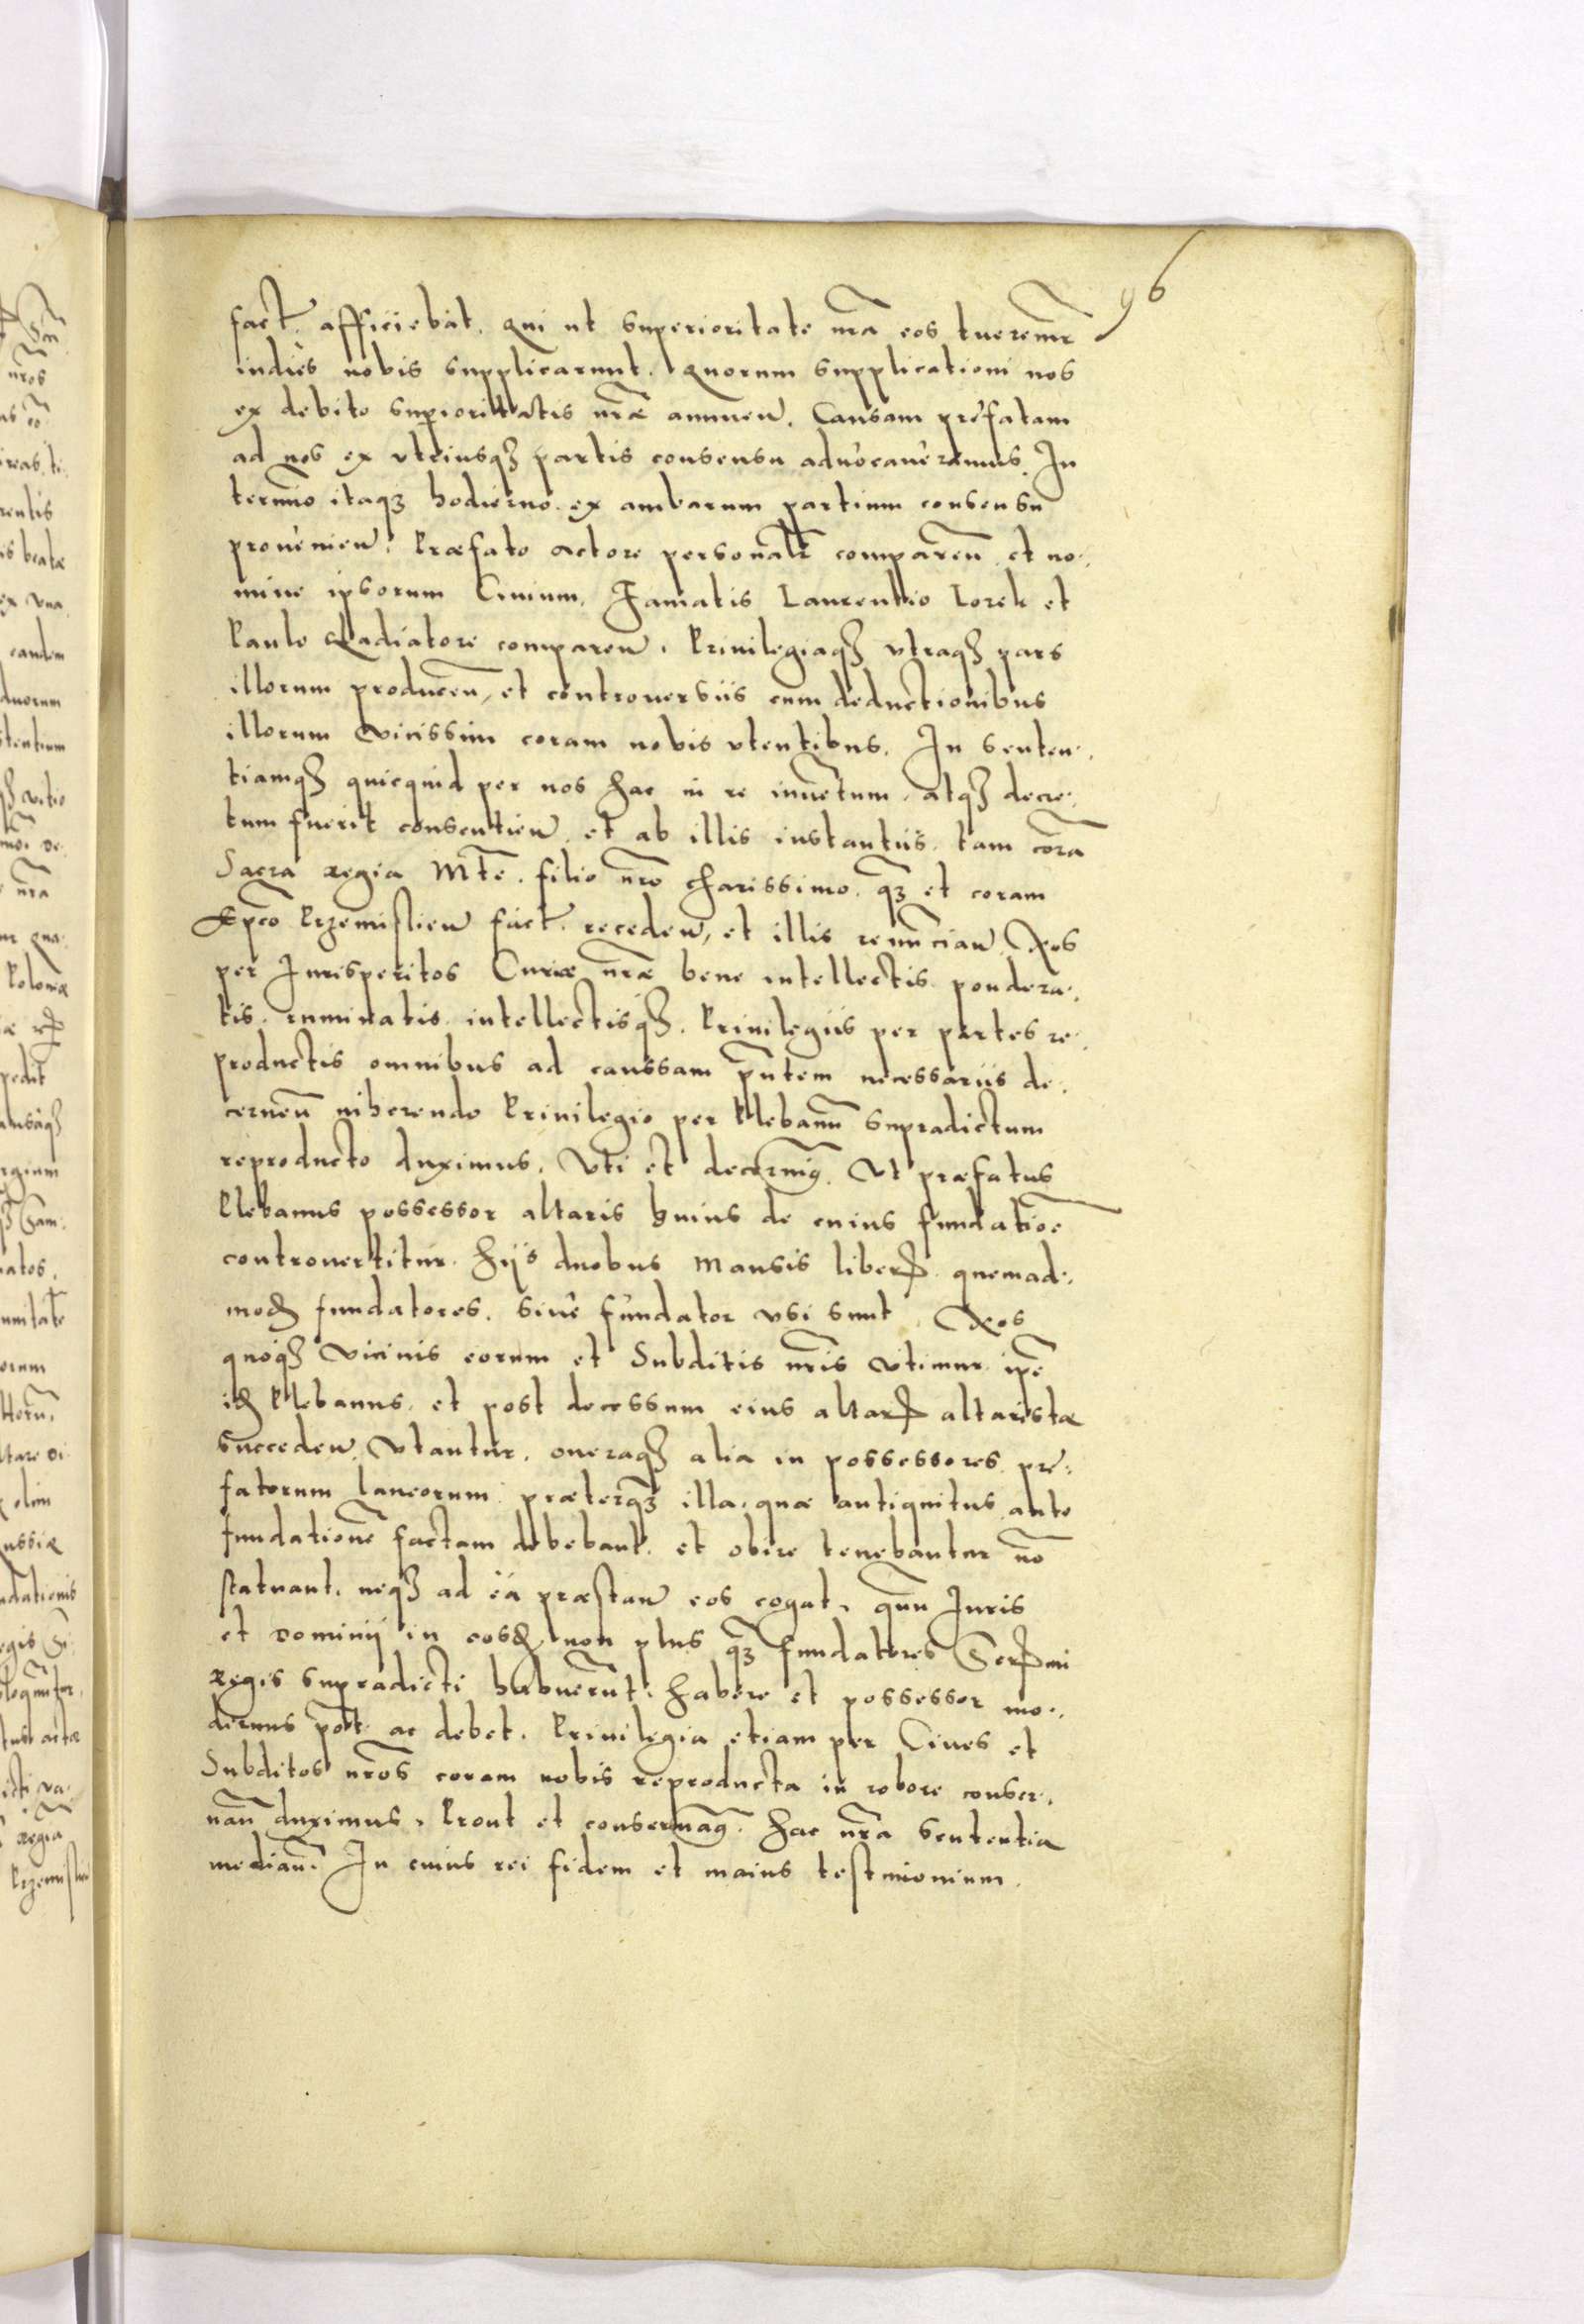 96
fact. afficiebat. Qui ut superioritate nr̃a eos tueremr̃
indies nobis supplicarunt. Quorum supplicationi nos
ex debito superioritatis nr̃æ annuen̄. Causam præfatam
ad nos ex vtriusqꝫ partis consensu aduocaueramus. In
termīo itaqꝫ hodierno ex ambarum partium consensu
prouenien̄. Præfato actore personalr̃ comparen̄ et no:
mine ipsorum Ciuium, Famatis Laurentio Lorek et
Paulo Gladiatore comparen̄. Priuilegiaqꝫ vtraqꝫ pars
illorum producen̄, et controuersiis cum deductionibus
illorum vicissim coram nobis vtentibus. In senten:
tiamqꝫ quicquid per nos hac in re inuentum, atqꝫ decre:
tum fuerit consentien̄. et ab illis instantiis. tam corā
Sacra regia Mte. filio nr̃o charissimo. qꝫ et coram
Ep̃co Przemislien̄ fact. receden̄, et illis renuncian̄. Nos
per Jurisperitos Curiæ nr̃æ bene intellectis pondera:
tis. ruminatis. intellectisqꝫ. Priuilegiis per partes re:
productis omnibus ad caussam pñtem necessariis de:
cernen̄ inherendo Priuilegio per Plebanū supradictum
reproducto duximus. Vti et decernimꝰ. Ut præfatus
Plebanus possessor altaris huius de cuius fundatiõe
controuertitur. hijs duobus Mansis liberꝭ. quemad:
modꝫ fundatores. siue fundator vsi sunt. Nos
quoqꝫ vicinis eorum et Subditis nr̃is vtimur ip̃e
idꝫ Plebanus. et post decessum eius altarꝭ altaristæ
succeden̄. vtantur. oneraqꝫ alia in possessores. præ:
fatorum laneorum præterqꝫ illa, quæ antiquitus ante
fundationē factam debebant. et obire tenebantur nō
statuant. neqꝫ ad ea præstan̄ eos cogat. quū Juris
et Dominij in eosdꝫ non plus qꝫ fundatores Serꝭmi
Regis supradicti habuerūt. habere et possessor mo:
dernus põt ac debet. Priuilegia etiam per Ciues et
Subditos nr̃os coram nobis reproducta in robore conser:
uan̄ duximus. Prout et conseruamꝰ. hac nr̃a sententia
median̄. In cuius rei fidem et maius testimonium.